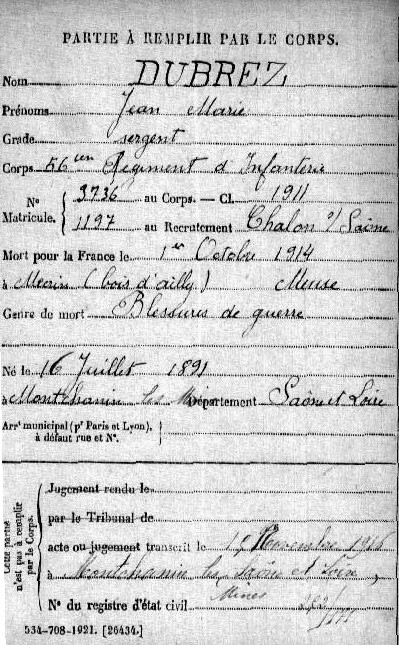 PARTIE À REMPLIR PAR LE CORPS.
Nom DUBREZ
Prénoms Jean Marie
Grade sergent
Corps 56ième Régiment d'Infanterie
N° Matricule. 3736 au Corps. — Cl. 1911
1197 au Recrutement Chalon s/ Saône
Mort pour la France le 1er Octobre 1914
à Mecrin (bois d'ailly) Meuse
Genre de mort Blessures de guerre
Né le 16 Juillet 1891
à Montchanin les Mines Département Saône et Loire
Arrt municipal (pr Paris et Lyon),
à défaut rue et N°.
Cette partie n'est pas à remplir par le Corps.
Jugement rendu le
par le Tribunal de
acte ou jugement transcrit le Novembre 1916
à Montchanin les Saône et Loire
Mines
N° du registre d'état civil
534-708-1921. [26434.]